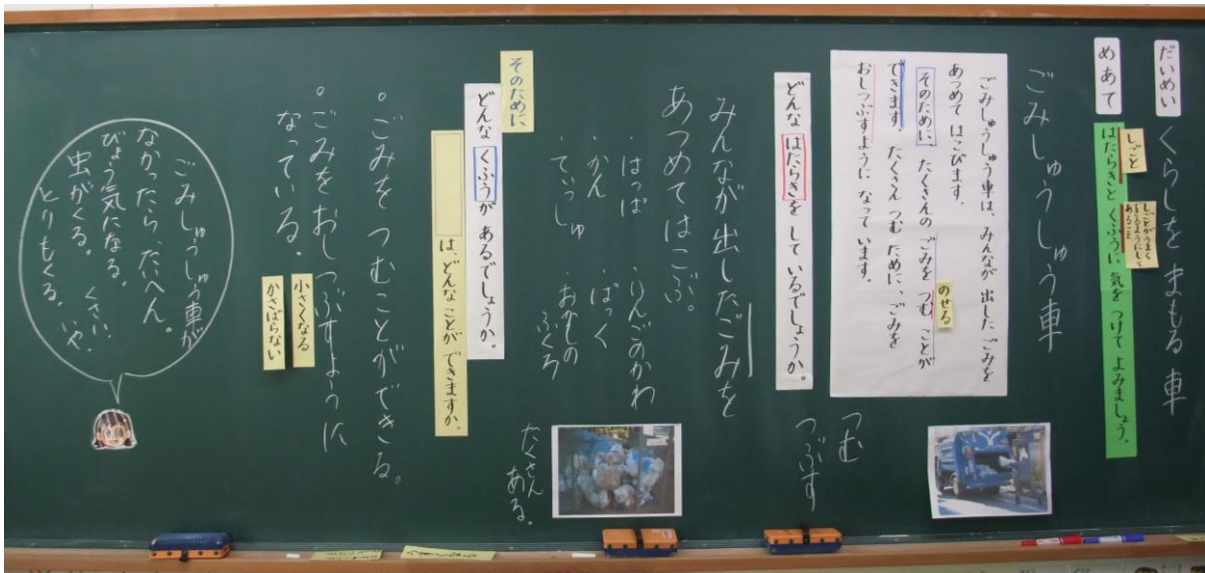 だいめい
くらしを まもる 車
めあて
しごと
しごとがうまく
できるようにして
あること
はたらきと くふうに 気を つけて よみましょう。
ごみしゅうしゅう車
ごみしゅうしゅう車は、みんなが 出した ごみを
あつめて はこびます。
そのために、たくさんの ごみを つむ ことが
のせる
できます。たくさん つむ ために、ごみを
おしつぶすように なって います。
つむ
つぶす
どんな はたらきを して いるでしょうか。
みんなが出したごみを
あつめてはこぶ。
・はっぱ
・りんごのかわ
・かん
・ばっく
・てぃっしゅ
・おかしの
ふくろ
たくさん
ある。
そのために
どんな くふうが あるでしょうか。
は、どんな ことが できますか。
。ごみを つむことができる。
。ごみをおしつぶすように
なっている。
小さくなる
かさばらない
ごみしゅうしゅう車が
なかったら、たいへん。
びょう気になる。 くさい。
虫がくる。 いや。
とりもくる。